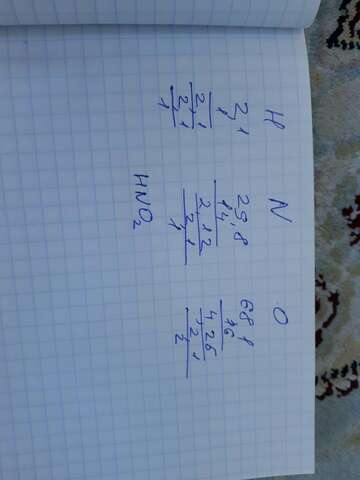 H N O
2,1 29,8 68,1
1 14 16
2,1 2,12 4,25
2,1 2,1 2,1
1 1 2
HNO₂